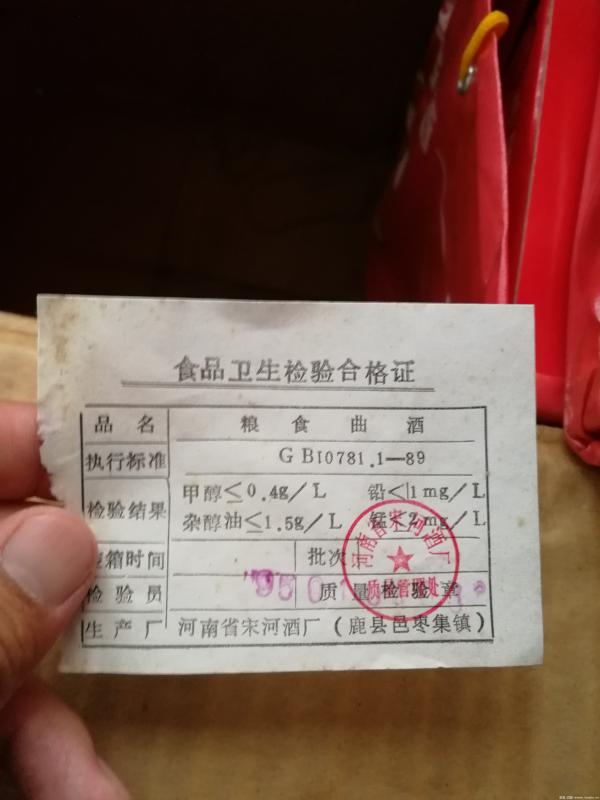 食品卫生检验合格证
品名 粮食曲酒
执行标准 GB10781.1—89
检验结果 甲醇≤0.4g/L 铅≤1mg/L
杂醇油≤1.5g/L 锰≤2mg/L
装箱时间 批次
检验员 质量检验章
生产厂 河南省宋河酒厂(鹿县邑枣集镇)
河南省宋河酒厂
质量管理处